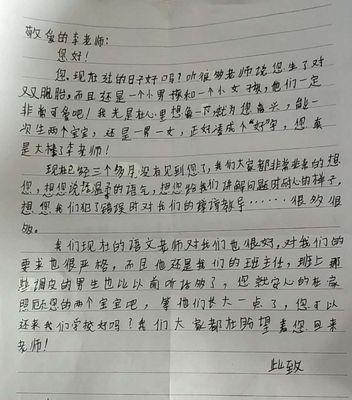 敬爱的李老师:
您好!
您现在过的日子好吗?听很多老师说您生了对
双胞胎,而且还是一个小男孩和一个小女孩,他们一定
非常可爱吧!我光是在心里想象一下就为您高兴,能一
次生两个宝宝,还是一男一女,正好凑成个“好”字,您真
是太棒了李老师!
现在都三个多月没有见到您了,我们大家都非常非常的想
您,想您说话温柔的语气,想您给我们讲解问题时耐心的样子,
想您我们犯了错误时对我们的谆谆教导……很多很
多。
我们现在的语文老师对我们也很好,对我们的
要求也很严格,而且他还是我们的班主任,班上那
些调皮的男生也比以前听话多了,您就安心的在家
照顾您的两个宝宝吧,等他们长大一点了,您可以
还来我们学校好吗?我们大家都在盼望着您回来
老师!
此致